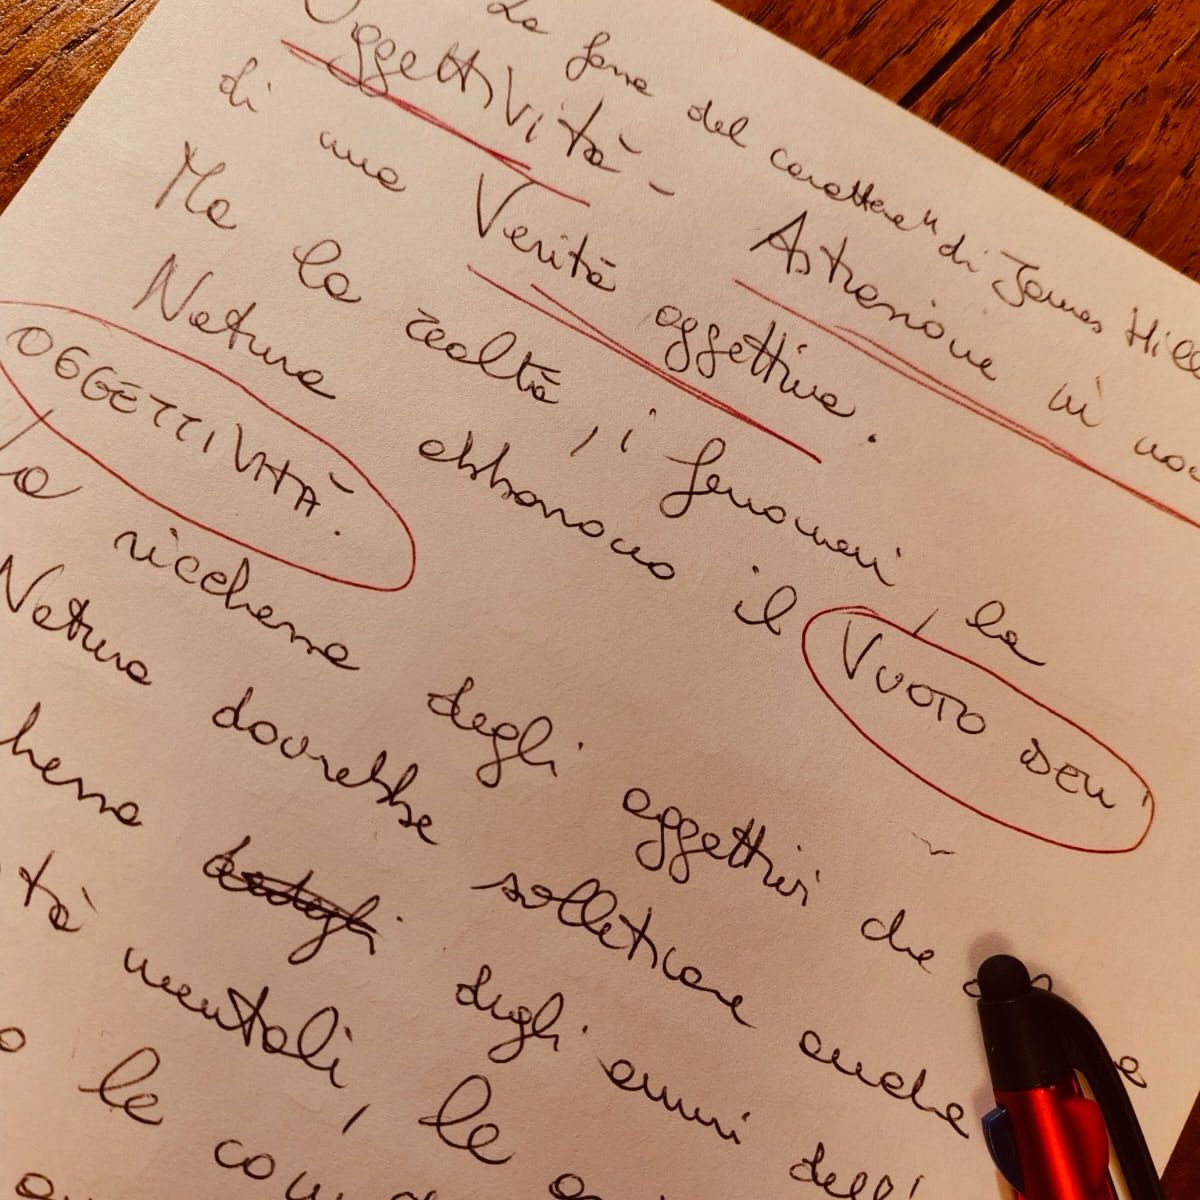 La forza del carattere" di James Hill
Oggettività - Astrazione in no
di una Verità oggettiva.
Ma la realtà, i fenomeni, la
Natura abbonano il VUOTO DELL'
OGGETTIVITÀ.
La ricchezza degli aggettivi che
Natura dovrebbe solleticare anche
degli anni dell'
tà mentali, le
le